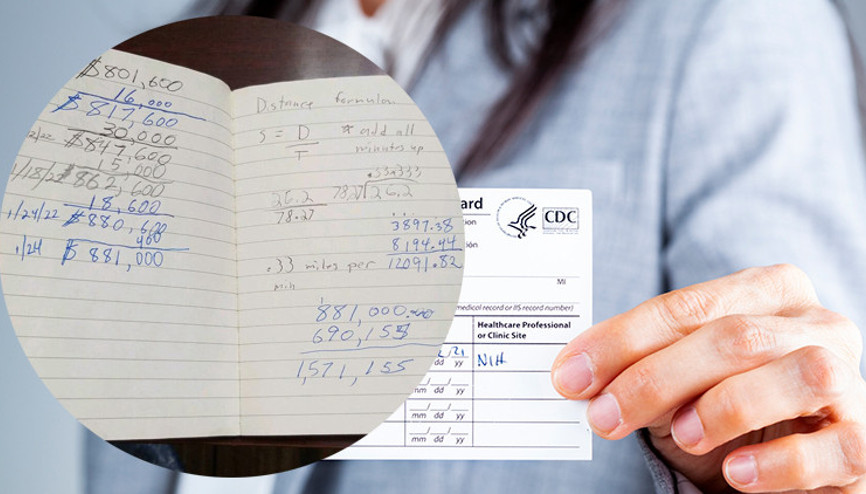 $801,600
16,000
$817,600
30,000
$847,600
15,000
1/18/22 $862,600
18,600
1/24/22 $880,600
400
1/24 $881,000
Distnace formulon
S = D
T
* add all
minutes up
.334333
26.2 78.27 26.2
78.27
3897.38
8,194.44
.33 miles per 12091.82
min
881,000.00
690,155
1,571,155
ard
CDC
MI
medical record or IIS record number)
Healthcare Professional
or Clinic Site
/21 NIH
dd yy
mm dd yy
mm dd yy
mm dd yy